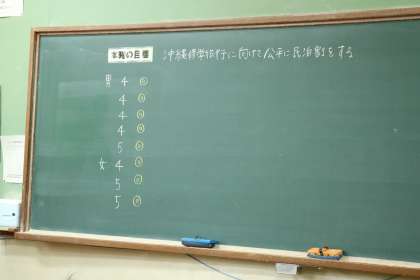 本時の目標 沖縄修学旅行に向けて公平に民泊割をする
男 4
4
4
4
5
女 4
5
5